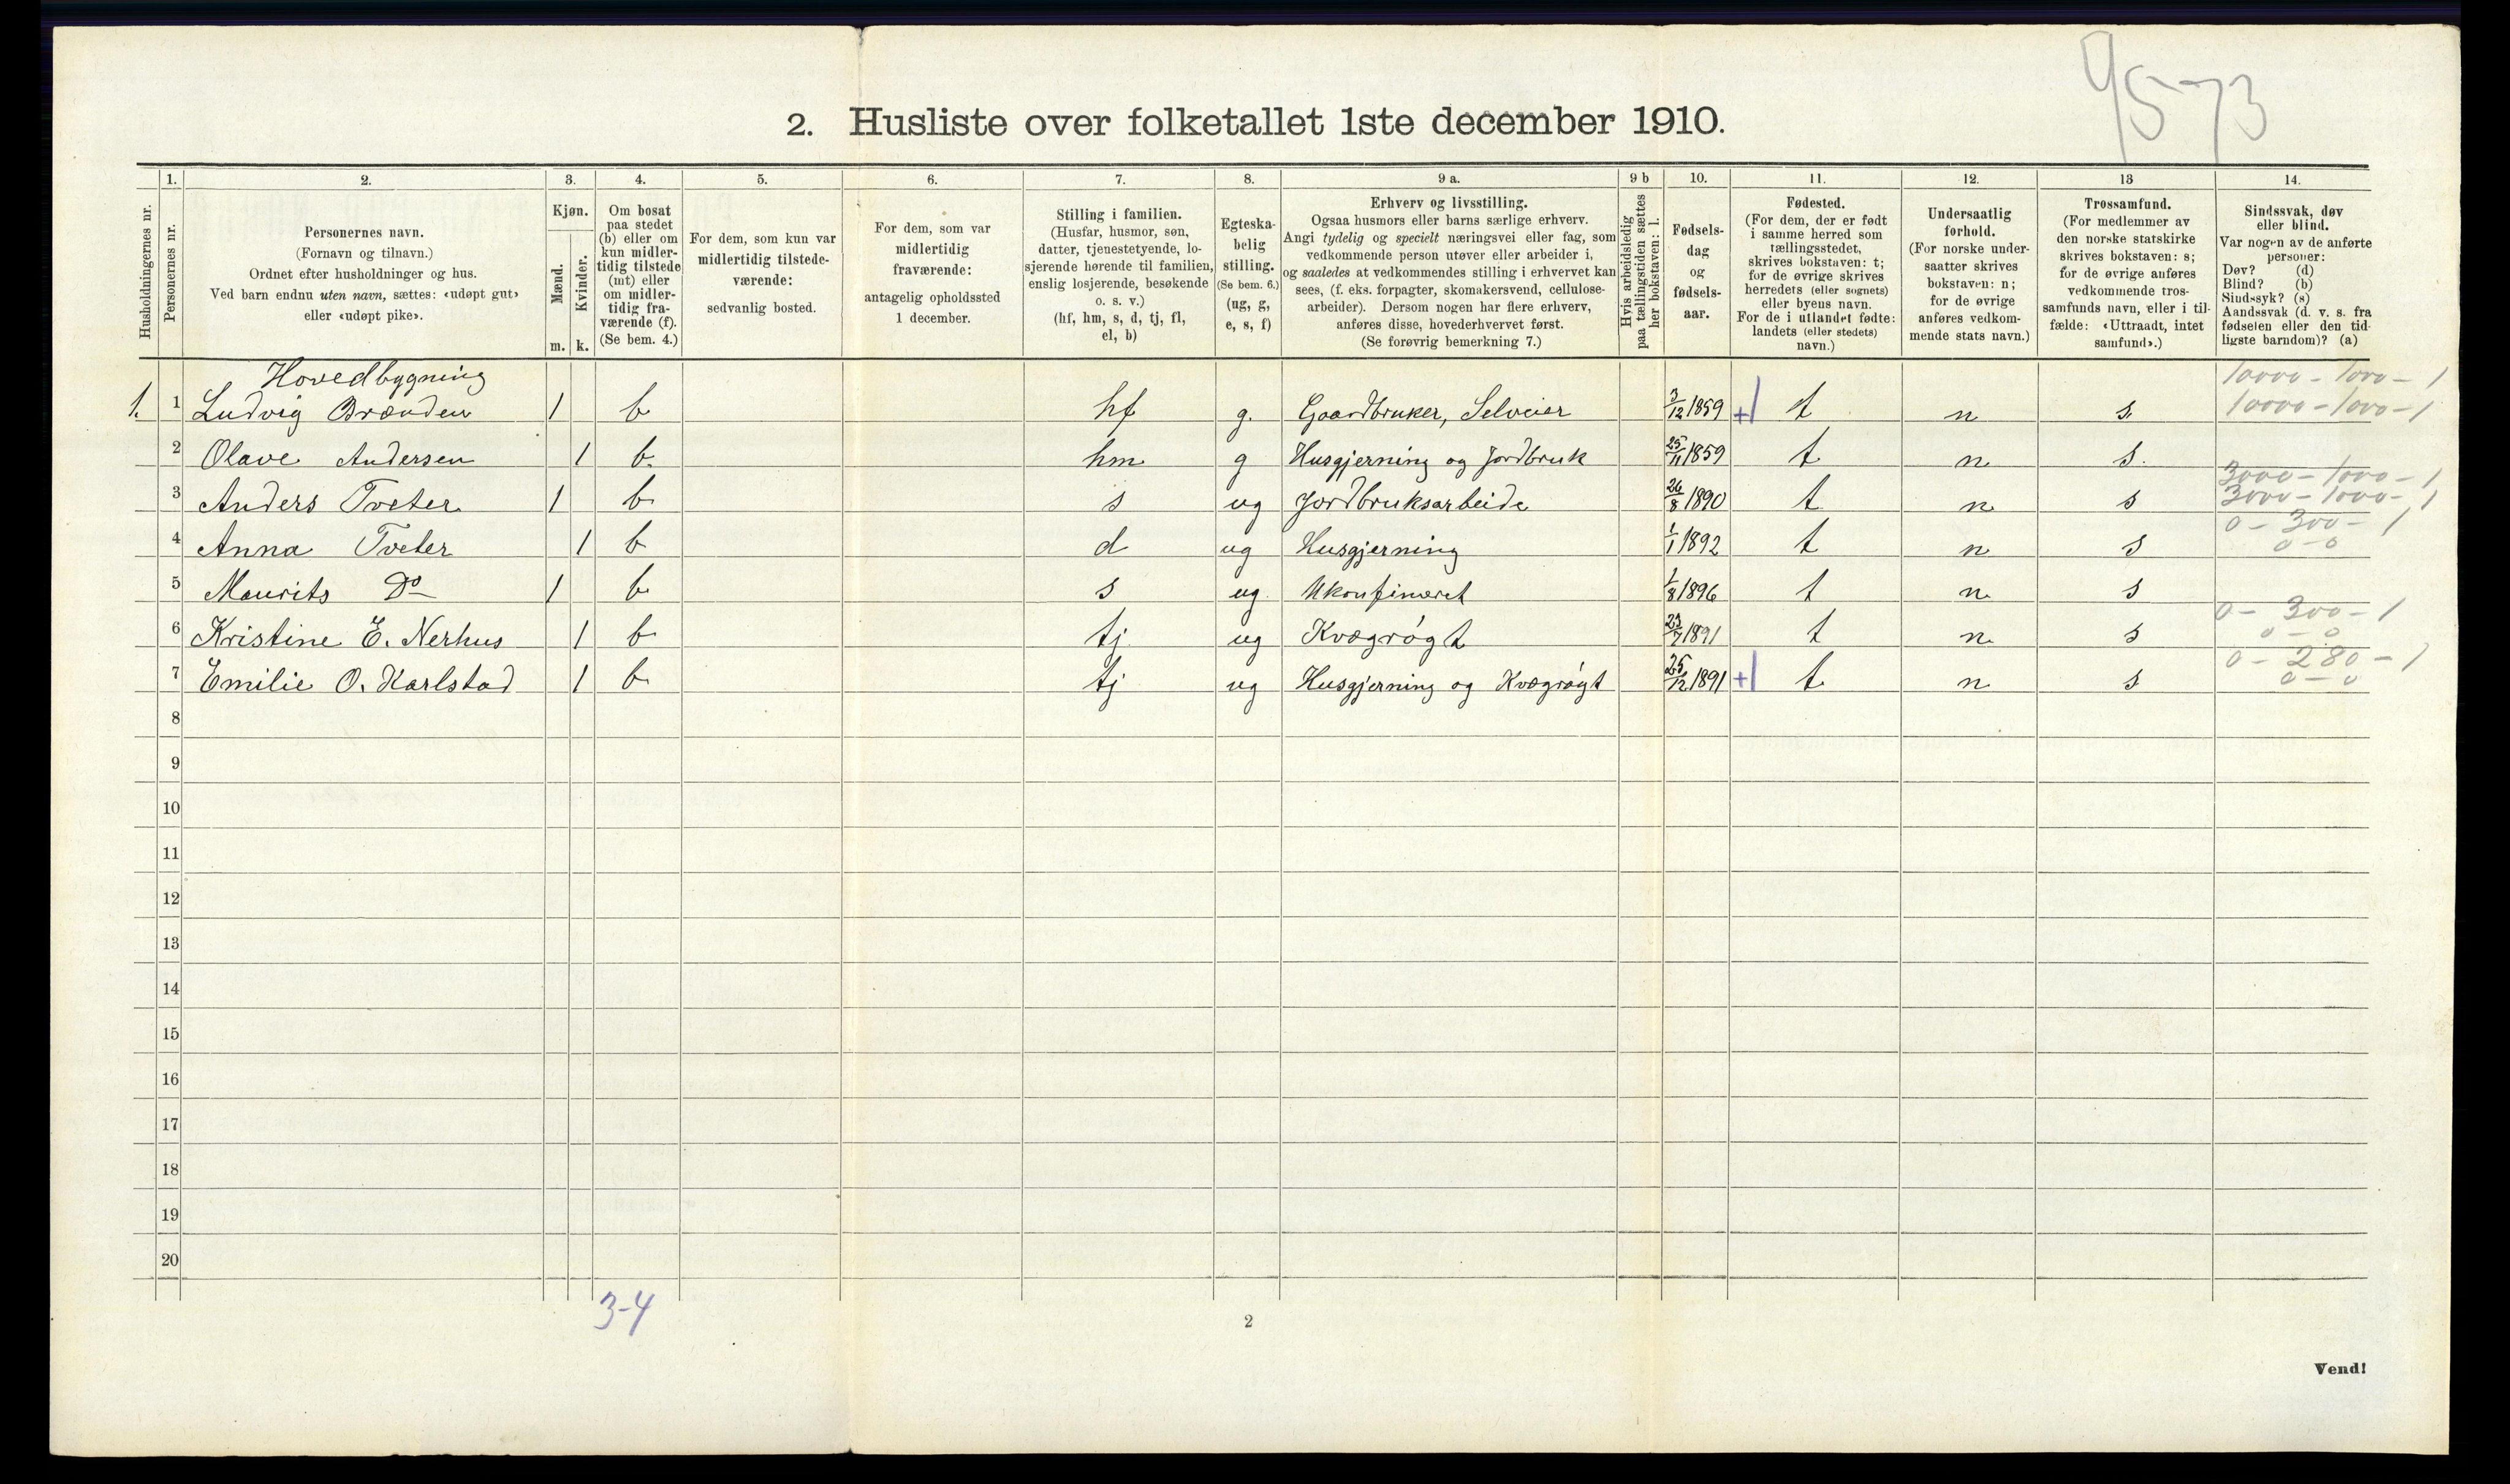 9573
2. Husliste over folketallet 1ste december 1910.
1. 2. 3. 4. 5. 6. 7. 8. 9 a. 9 b 10. 11. 12. 13 14.
Husholdningernes nr.
Personernes nr.
Personernes navn.
(Fornavn og tilnavn.)
Ordnet efter husholdninger og hus.
Ved barn endnu uten navn, sættes: «udøpt gut»
eller «udøpt pike».
Kjøn.
Mænd.
Kvinder.
m. k.
Om bosat
paa stedet
(b) eller om
kun midler-
tidig tilstede
(mt) eller
om midler-
tidig fra-
værende (f).
(Se bem. 4.)
For dem, som kun var
midlertidig tilstede-
værende:
sedvanlig bosted.
For dem, som var
midlertidig
fraværende:
antagelig opholdssted
1 december.
Stilling i familien.
(Husfar, husmor, søn,
datter, tjenestetyende, lo-
sjerende hørende til familien,
enslig losjerende, besøkende
o. s. v.)
(hf, hm, s, d, tj, fl,
el, b)
Egteska-
belig
stilling.
(Se bem. 6.)
(ug, g,
e, s, f)
Erhverv og livsstilling.
Ogsaa husmors eller barns særlige erhverv.
Angi tydelig og specielt næringsvei eller fag, som
vedkommende person utøver eller arbeider i,
og saaledes at vedkommendes stilling i erhvervet kan
sees, (f. eks. forpagter, skomakersvend, cellulose-
arbeider). Dersom nogen har flere erhverv,
anføres disse, hovederhvervet først.
(Se forøvrig bemerkning 7.)
Hvis arbeidsledig
paa tællingstiden sættes
her bokstaven: l.
Fødsels-
dag
og
fødsels-
aar.
Fødested.
(For dem, der er født
i samme herred som
tællingsstedet,
skrives bokstaven: t;
for de øvrige skrives
herredets (eller sognets)
eller byens navn.
For de i utlandet fødte:
landets (eller stedets)
navn.)
Undersaatlig
forhold.
(For norske under-
saatter skrives
bokstaven: n;
for de øvrige
anføres vedkom-
mende stats navn.)
Trossamfund.
(For medlemmer av
den norske statskirke
skrives bokstaven: s;
for de øvrige anføres
vedkommende tros-
samfunds navn, eller i til-
fælde: «Uttraadt, intet
samfund».)
Sindssvak, døv
eller blind.
Var nogen av de anførte
personer:
Døv? (d)
Blind? (b)
Sindssyk? (s)
Aandssvak (d. v. s. fra
fødselen eller den tid-
ligste barndom)? (a)
Hovedbygning 10000 - 1000 - 1
1. 1 Ludvig Brænden 1 b hf g. Gaardbruker, Selveier 3/12 1859 +1 t n s. 10000 - 1000 - 1
2 Olave Andersen 1 b. hm g Husgjerning og Jordbruk 25/11 1859 t n s.
3000 - 1000 - 1
3 Anders Tveter 1 b s ug Jordbruksarbeide 26/8 1890 t n s 3000 - 1000 - 1
0 - 300 - 1
4 Anna Tveter 1 b d ug Husgjerning 1/1 1892 t n s 0 - 0
5 Maurits Do 1 b s ug. Ukonfimeret 1/8 1896 t n s
0 - 300 - 1
6 Kristine E. Nerhus 1 b tj ug Kvægrøgt 23/7 1891 t n s 0 - 0
0 - 280 - 1
7 Emilie O. Karlstad 1 b tj ug Husgjerning og Kvægrøgt 25/12 1891 +1 t n s 0 - 0
8
9
10
11
12
13
14
15
16
17
18
19
20
3-4
2
Vend!